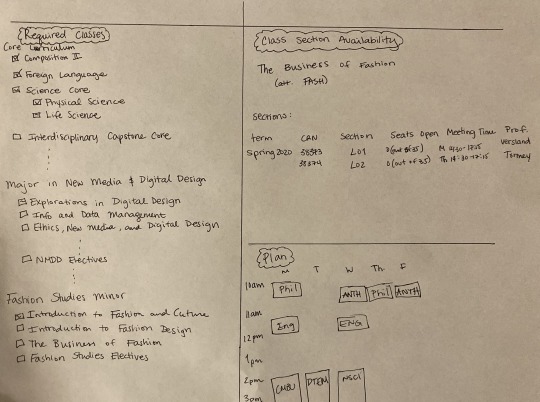 Required Classes
Core Curriculum
Composition II
Foreign Language
Science Core
Physical Science
Life Science
Interdisciplinary Capstone Core
Major in New Media & Digital Design
Explorations in Digital Design
Info and Data Management
Ethics, New Media, and Digital Design
NMDD Electives
Fashion Studies Minor
Introduction to Fashion and Culture
Introduction to Fashion Design
The Business of Fashion
Fashion Studies Electives
Class Section Availability
The Business of Fashion
(att. FASH)
Sections:
term CRN Section Seats Open Meeting Time Prof.
Spring 2020 38873 L01 (out of 35) M Versland
38874 L02 0 (out of 35) Th
Plan
M T W Th F
10am Phil ANTH Phil ANTH
11am
Eng ENG
12pm
1pm
2pm CMBU DTEM NSCI
3pm